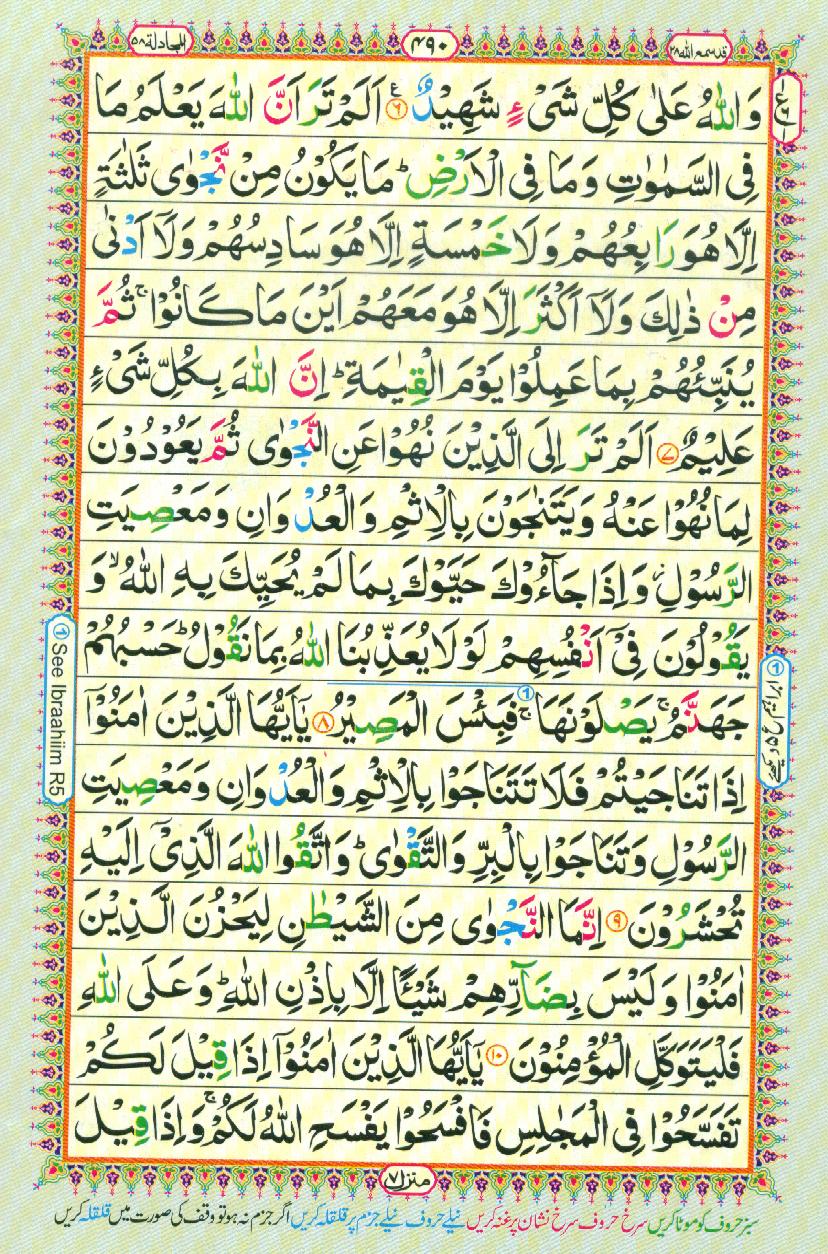 المجادلة ۵۸
۴۹۰
قد سمع الله ۲۸
وَاللّٰهُ عَلٰى كُلِّ شَىْءٍ شَهِيْدٌ ۶ اَلَمْ تَرَ اَنَّ اللّٰهَ يَعْلَمُ مَا
فِى السَّمٰوٰتِ وَمَا فِى الْاَرْضِ ؕ مَا يَكُوْنُ مِنْ نَّجْوٰى ثَلٰثَةٍ
اِلَّا هُوَ رَابِعُهُمْ وَلَا خَمْسَةٍ اِلَّا هُوَ سَادِسُهُمْ وَلَآ اَدْنٰى
مِنْ ذٰلِكَ وَلَآ اَكْثَرَ اِلَّا هُوَ مَعَهُمْ اَيْنَ مَا كَانُوْا ۚ ثُمَّ
يُنَبِّئُهُمْ بِمَا عَمِلُوْا يَوْمَ الْقِيٰمَةِ ؕ اِنَّ اللّٰهَ بِكُلِّ شَىْءٍ
عَلِيْمٌ ۷ اَلَمْ تَرَ اِلَى الَّذِيْنَ نُهُوْا عَنِ النَّجْوٰى ثُمَّ يَعُوْدُوْنَ
لِمَا نُهُوْا عَنْهُ وَيَتَنٰجَوْنَ بِالْاِثْمِ وَالْعُدْوَانِ وَمَعْصِيَتِ
الرَّسُوْلِ ؗ وَاِذَا جَآءُوْكَ حَيَّوْكَ بِمَا لَمْ يُحَيِّكَ بِهِ اللّٰهُ ۙ وَ
يَقُوْلُوْنَ فِىْٓ اَنْفُسِهِمْ لَوْلَا يُعَذِّبُنَا اللّٰهُ بِمَا نَقُوْلُ ؕ حَسْبُهُمْ
جَهَنَّمُ ۚ يَصْلَوْنَهَا ۚ ① فَبِئْسَ الْمَصِيْرُ ۸ يٰٓاَيُّهَا الَّذِيْنَ اٰمَنُوْٓا
اِذَا تَنَاجَيْتُمْ فَلَا تَتَنَاجَوْا بِالْاِثْمِ وَالْعُدْوَانِ وَمَعْصِيَتِ
الرَّسُوْلِ وَتَنَاجَوْا بِالْبِرِّ وَالتَّقْوٰى ؕ وَاتَّقُوا اللّٰهَ الَّذِىْٓ اِلَيْهِ
تُحْشَرُوْنَ ۹ اِنَّمَا النَّجْوٰى مِنَ الشَّيْطٰنِ لِيَحْزُنَ الَّذِيْنَ
اٰمَنُوْا وَلَيْسَ بِضَآرِّهِمْ شَيْـًٔا اِلَّا بِاِذْنِ اللّٰهِ ؕ وَعَلَى اللّٰهِ
فَلْيَتَوَكَّلِ الْمُؤْمِنُوْنَ ۱۰ يٰٓاَيُّهَا الَّذِيْنَ اٰمَنُوْٓا اِذَا قِيْلَ لَكُمْ
تَفَسَّحُوْا فِى الْمَجٰلِسِ فَافْسَحُوْا يَفْسَحِ اللّٰهُ لَكُمْ ۚ وَاِذَا قِيْلَ
① See Ibraahiim R5
منزل ۷
سبز حروف کو موٹا کریں سرخ حروف سرخ نشان پر غنہ کریں نیلے حروف نیلے جزم پر قلقلہ کریں اگر جزم نہ ہو تو وقف کی صورت میں قلقلہ کریں